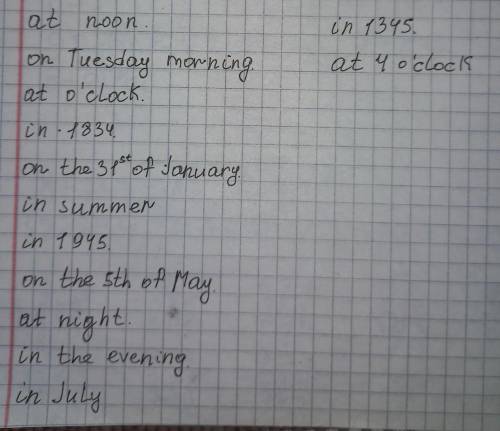 at noon.
on Tuesday morning.
at o'clock.
in 1834.
on the 31st of January.
in summer
in 1945.
on the 5th of May.
at night.
in the evening.
in July
in 1345.
at 4 o'clock